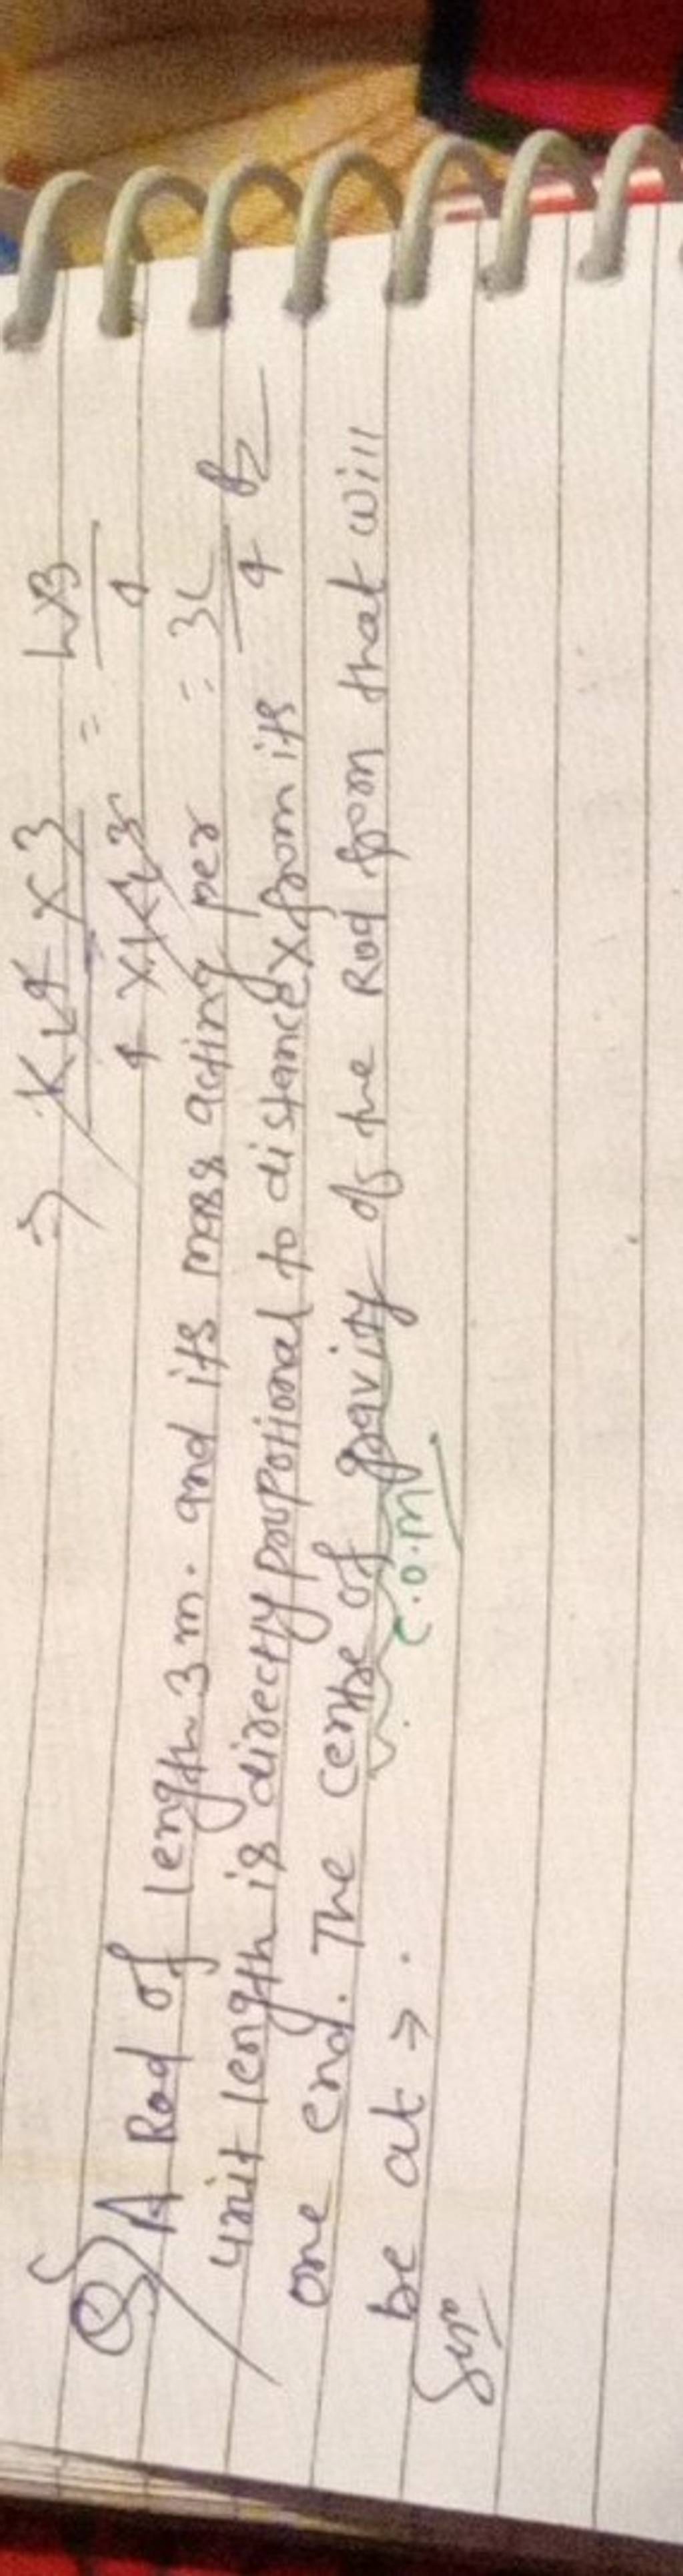 ⇒ KL⁴ × 3 = L×3
4 × KL³ 4
= 3L
4
Q) A Rod of length 3 m. and its mass acting per
unit length is directly proportional to distance x from its
one end. The centre of gravity of the Rod from that will
C.O.M
be at →.
Solⁿ